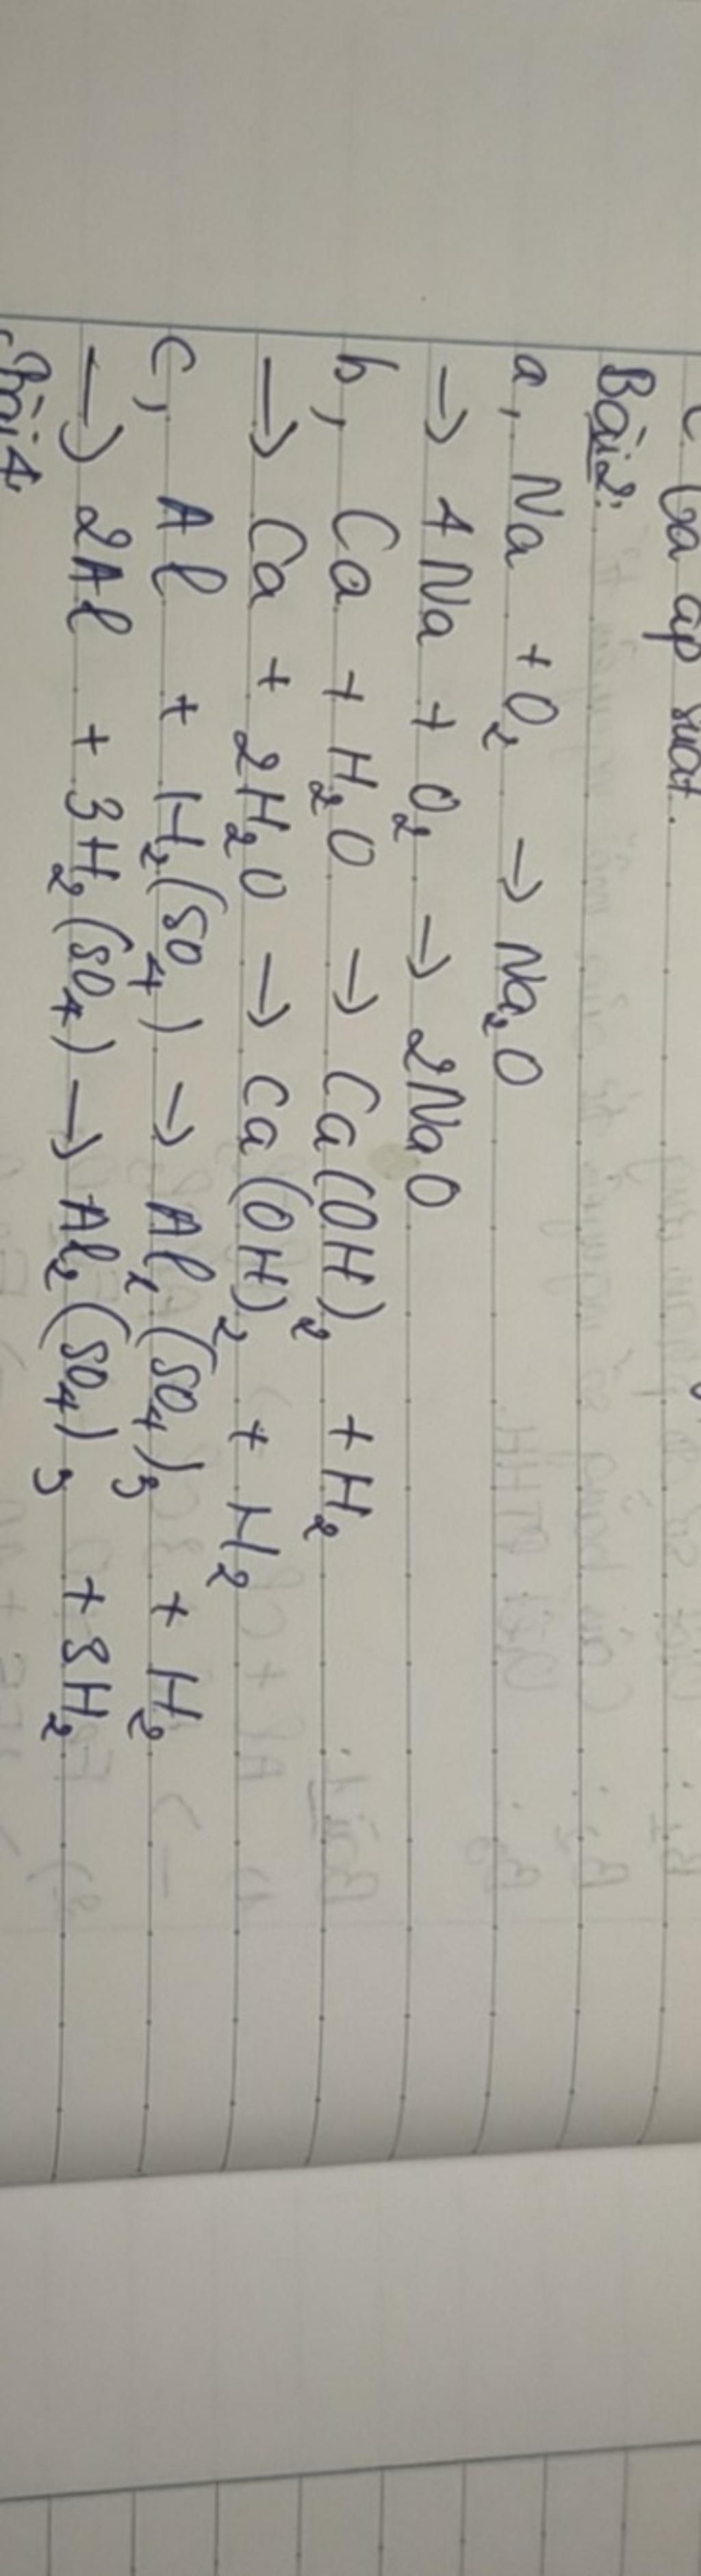 Ga áp suất.
Bài 2:
a, Na + O₂ → Na₂O
→ 4Na + O₂ → 2NaO
b, Ca + H₂O → Ca(OH)₂ + H₂
→ Ca + 2H₂O → Ca(OH)₂ + H₂
c, Al + H₂(SO₄) → Al₂(SO₄)₃ + H₂
→ 2Al + 3H₂(SO₄) → Al₂(SO₄)₃ + 3H₂
Bài 4